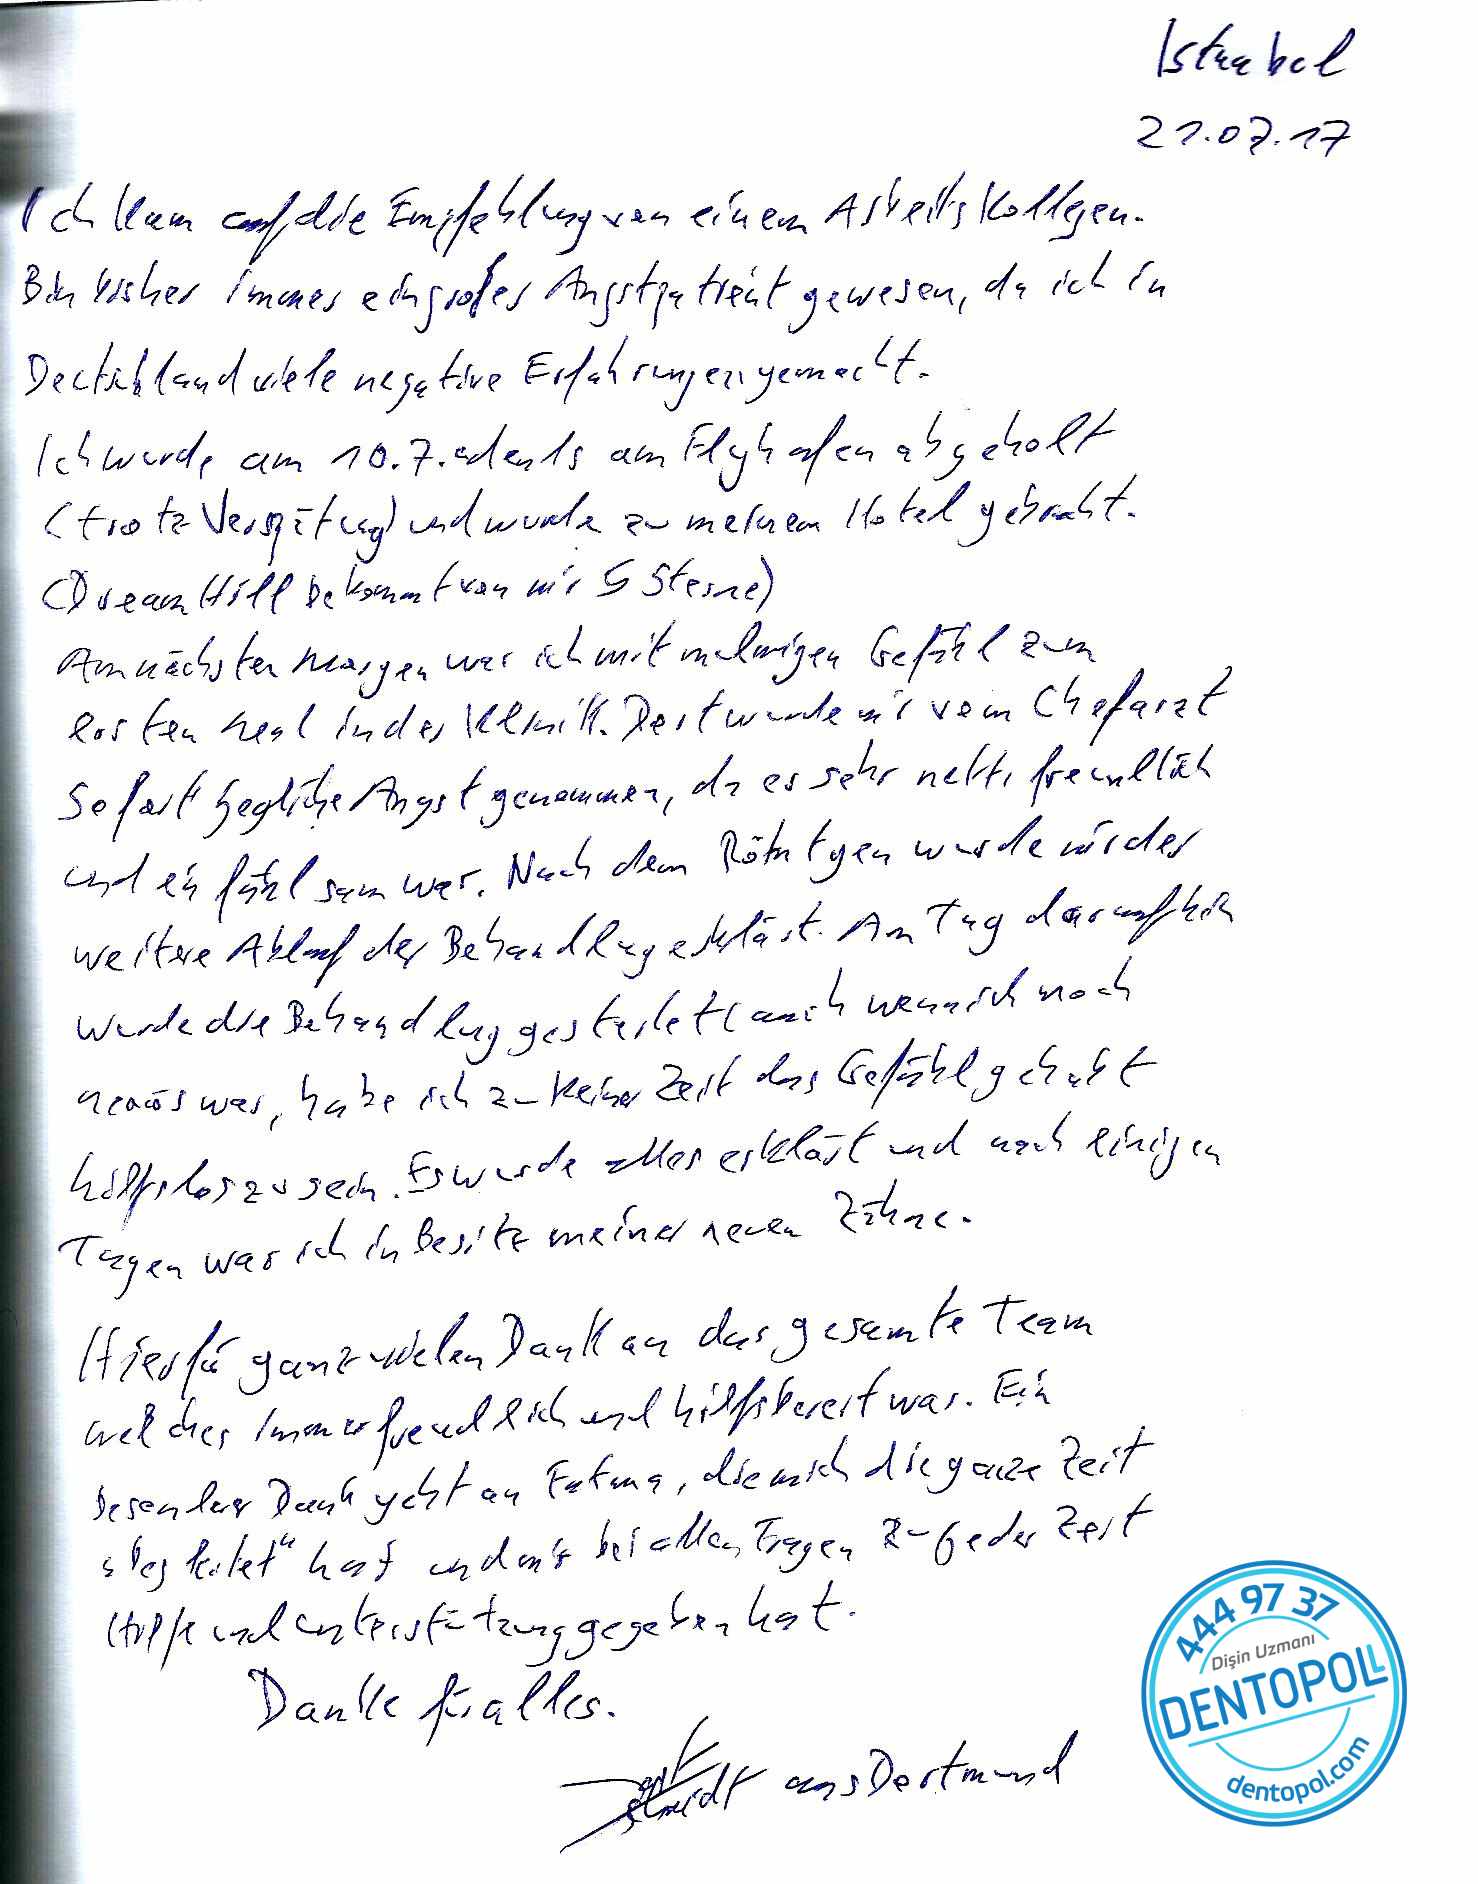 Istanbul
21.07.17
Ich kam auf die Empfehlung von einem Arbeitskollegen.
Bin bisher immer ein großer Angstpatient gewesen, da ich in
Deutschland viele negative Erfahrungen gemacht.
Ich wurde am 10.7. abends am Flughafen abgeholt
(trotz Verspätung) und wurde zu meinem Hotel gebracht.
(Dream Hill bekommt von mir 5 Sterne)
Am nächsten Morgen war ich mit mulmigen Gefühl zum
ersten Mal in der Klinik. Dort wurde mir vom Chefarzt
sofort jegliche Angst genommen, da er sehr nett, freundlich
und einfühlsam war. Nach dem Röhntgen wurde mir der
weitere Ablauf der Behandlung erklärt. Am Tag daraufhin
wurde die Behandlung gestartet (auch wenn ich noch
nervös war, habe ich zu keiner Zeit das Gefühl gehabt
hilfslos zu sein. Es wurde alles erklärt und nach einigen
Tagen war ich in Besitz meiner neuen Zähne.
Hierfür ganz vielen Dank an das gesamte Team
welches immer freundlich und hilfsbereit war. Ein
besonderer Dank geht an Fatma, die mich die ganze Zeit
„begleitet“ hat und mir bei allen Fragen zu jeder Zeit
Hilfe und Unterstützung gegeben hat.
Danke für alles.
aus Dortmund
444 97 37
Dişin Uzmanı
DENTOPOL
dentopol.com